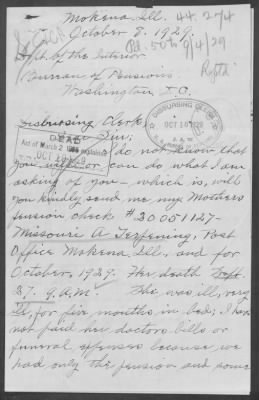 Mokena, Ill. 44.204
October 8. 1929.
Pd. 50th 9/4/29
Dept. of the Interior
Bureau of Pensions.
Washington D.C.
Disbursing Clerk,
DISBURSING OFFICE
OCT 10 1929
DEAD
Act of March 2
OCT 1929
Sir; I do not know that
you will or can do what I am
asking of you - which is, will
you kindly send me my Mothers
pension check # 30051127-
Missouri A Terpening, Post
Office Mokena, Ill., and for
October, 1929. Her death Sept.
27. 9. A.M. She was ill, very
ill, for five months in bed; I have
not paid her doctors bills or
funeral expenses because we
had only the pension and some